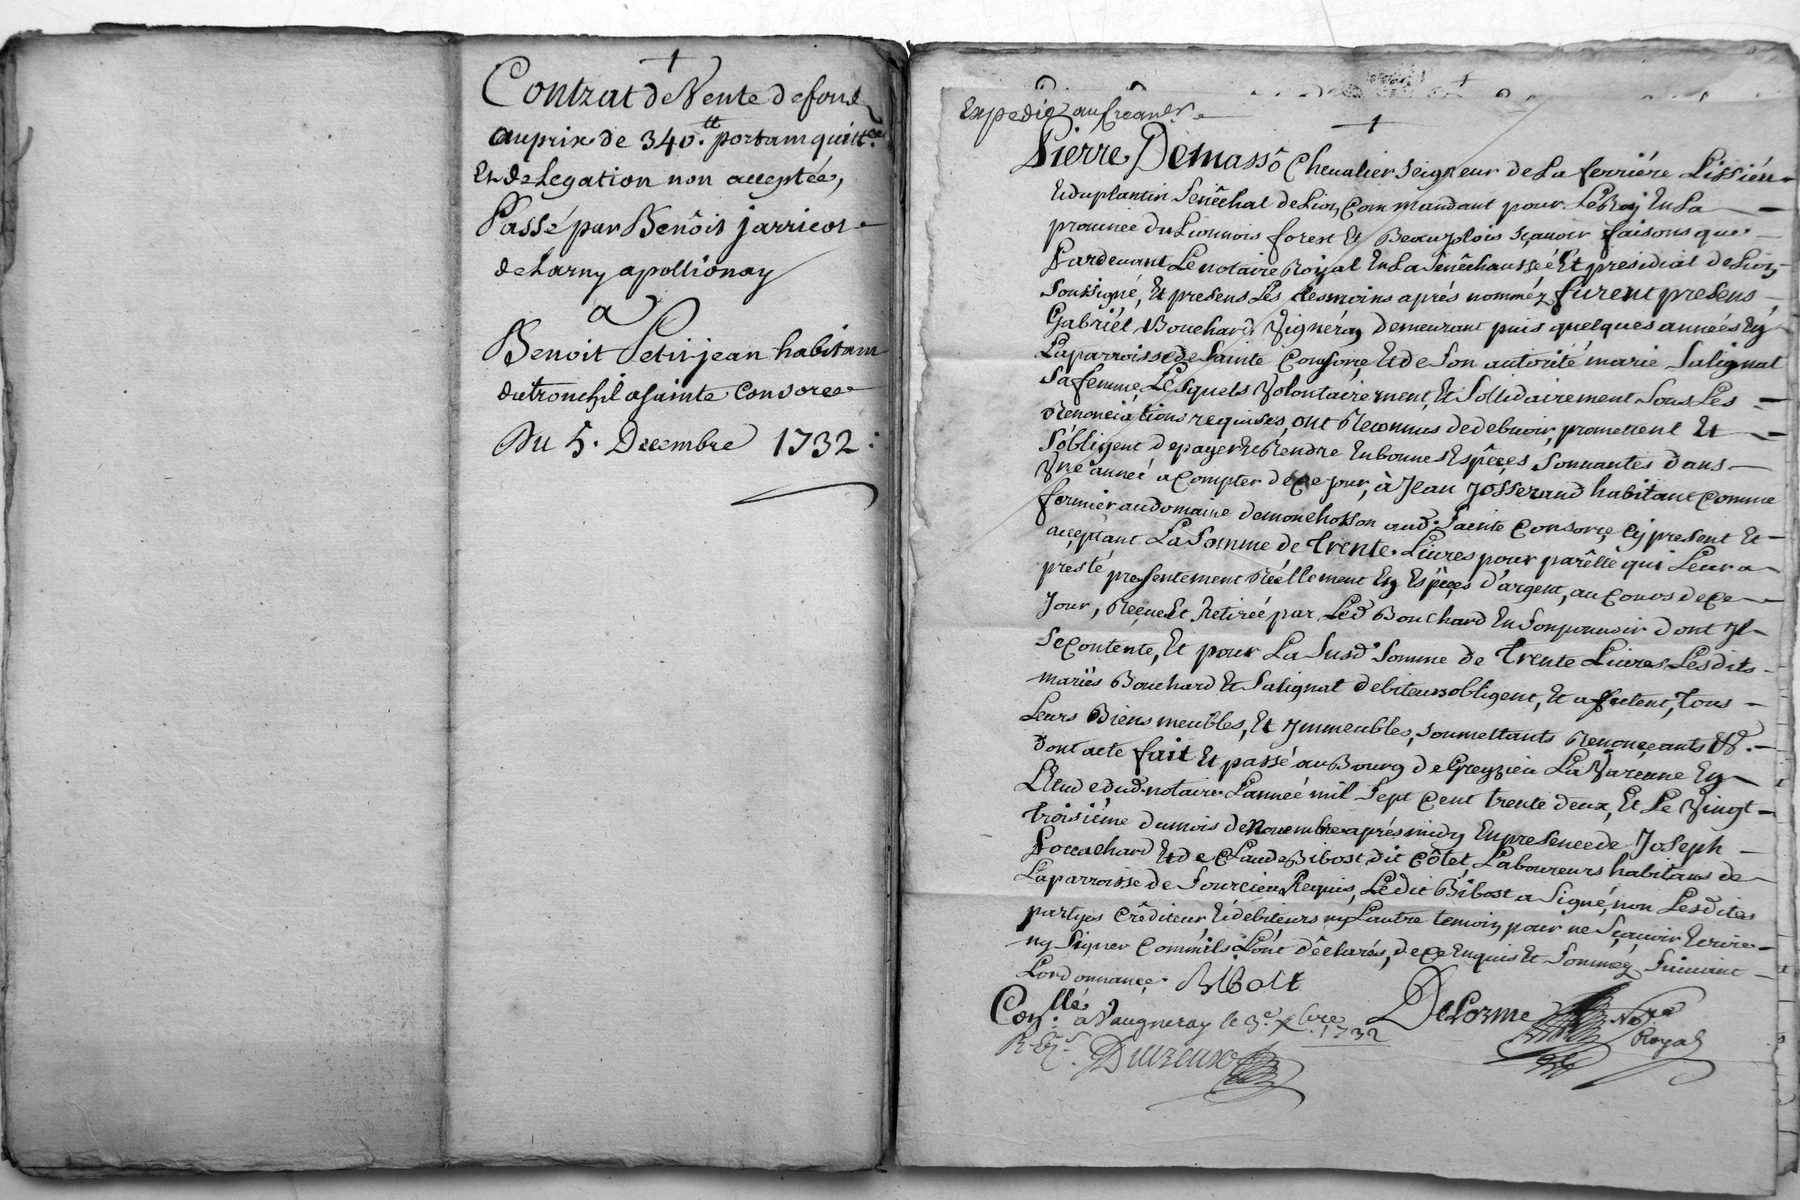 +
Contrat de Vente de fond
au prix de 340.tt portam quittce
Et delegation non acceptée,
Passé par Benôit jarricot
de Larny apollionay
a
Benoit Petit jean habitam
du tronchil a sainte Consorce
Du 5. Decembre 1732:
Expedié au Creancr
+
Pierre Demassô Chevalier Seigneur de La ferriére Lissién
Et du plantin Senêchal de Lion, Commandant pour Le Roy En La
province du Lionnois forest Et Beaujolois sçavoir faisons que
Pardevant Le notaire Royal En La Senêchaussée Et presidial de Lion
Soussigné, Et presens Les tesmoins aprés nomméz furent presens
Gabriél Bouchard Vignéron demeurant puis quelques années En
La parroisse de Sainte Consorce Et de Son autorité marie Salignat
Sa femme, Lesquels Volontairement, Et Sollidairement Sous Les
Renonciations requises, ont Reconnus de debvoir, promettent Et
S'obligent de payer Et Rendre En bonnes Espêces Sonnantes dans
Vne année a Compter de Ce jour, à Jean Josserand habitant Comme
fermier au domaine de monchosson aud. Sainte Consorce Cy present Et
acceptant La Somme de Trente Livres pour parêlle qui Leur a
presté presentement Réellement En Espêces d'argent, au Cours de Ce
Jour, Reçue Et Retirée par Led Bouchard En Son pouvoir dont Il
Se Contente, Et pour La Susd Somme de Trente Livres Lesdits
mariés Bouchard Et Salignat debiteurs obligent, Et affectent, Tous
Leurs Biens meubles, Et Immeubles, Soumettants Renonceants &.
dont acte fait Et passé au Bourg de Greyzieu La Varenne En
L'Etude dud. notaire L'année mil Sept Cent trente deux, Et Le Vingt
Troisième du mois de Novembre aprés midy En presence de Joseph
Et de Claude Bibost dit Côtet Laboureurs habitans de
La parroisse de Sourcieu Requis, Ledit Bibost a Signé, non Lesdites
partyes Créditeur Et débiteurs ny Lautre temoin pour ne Sçavoir Ecrire
ny Signer Comm'ils L'ônt dêclarés, de Ce Enquis Et Sommés Suivant
Lordonnance. Bibost
Conllé a Vaugneray le 3e. xbre 1732 DeLorme Notre
Royal